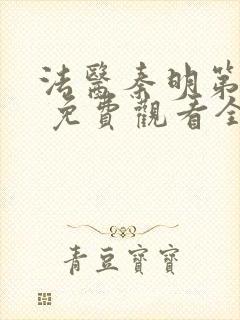 法醫秦明第
免費觀看全
青豆寶寶